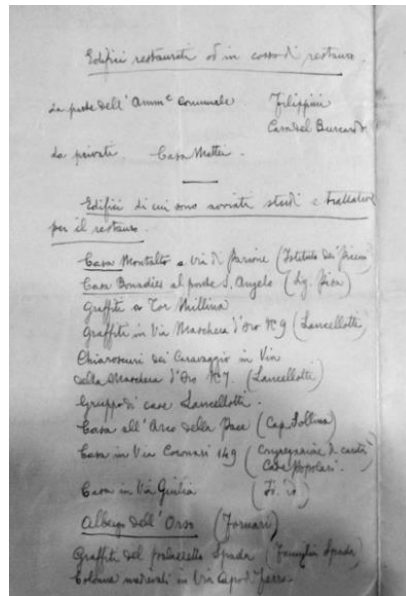 Edifici restaurati od in corso di restauro.
Da parte dell'Amm.e Comunale Filippini
Casa del Burcardo
Da privati Casa Mattei.
Edifici di cui sono avviati studi e trattative
per il restauro.
Casa Montalto a Via di Parione (Istituto dei Piceni)
Casa Bonadies al ponte S. Angelo (Sig. Pisa)
Graffiti a Tor Millina
Graffiti in Via Maschera d'Oro Nº 9 (Lancellotti)
Chiaroscuri del Caravaggio in Via
della Maschera d'Oro Nº 7. (Lancellotti)
Gruppo di case Lancellotti.
Casa all'Arco della Pace (Cap. Follina)
Casa in Via Coronari 149 (Congregazione di carità
Case Popolari.
Casa in Via Giulia (Id. id)
Albergo dell'Orso (Fornari)
Graffiti del palazzetto Spada (Famiglia Spada)
Colonne in Via Capo di Ferro.